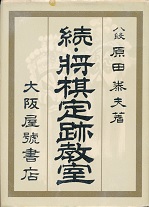 八段 原田泰夫著
続・將棋定跡教室
大阪屋號書店